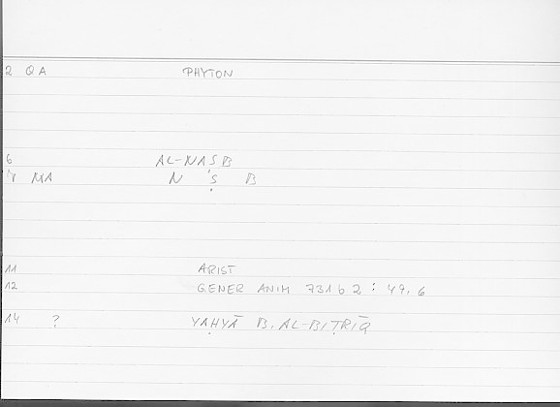 2 QA PHYTON
6 AL-NAṢB
MA N Ṣ B
11 ARIST
12 GENER ANIM 731 b 2 : 49, 6
14 ? YAḤYĀ B. AL-BIṬRĪQ